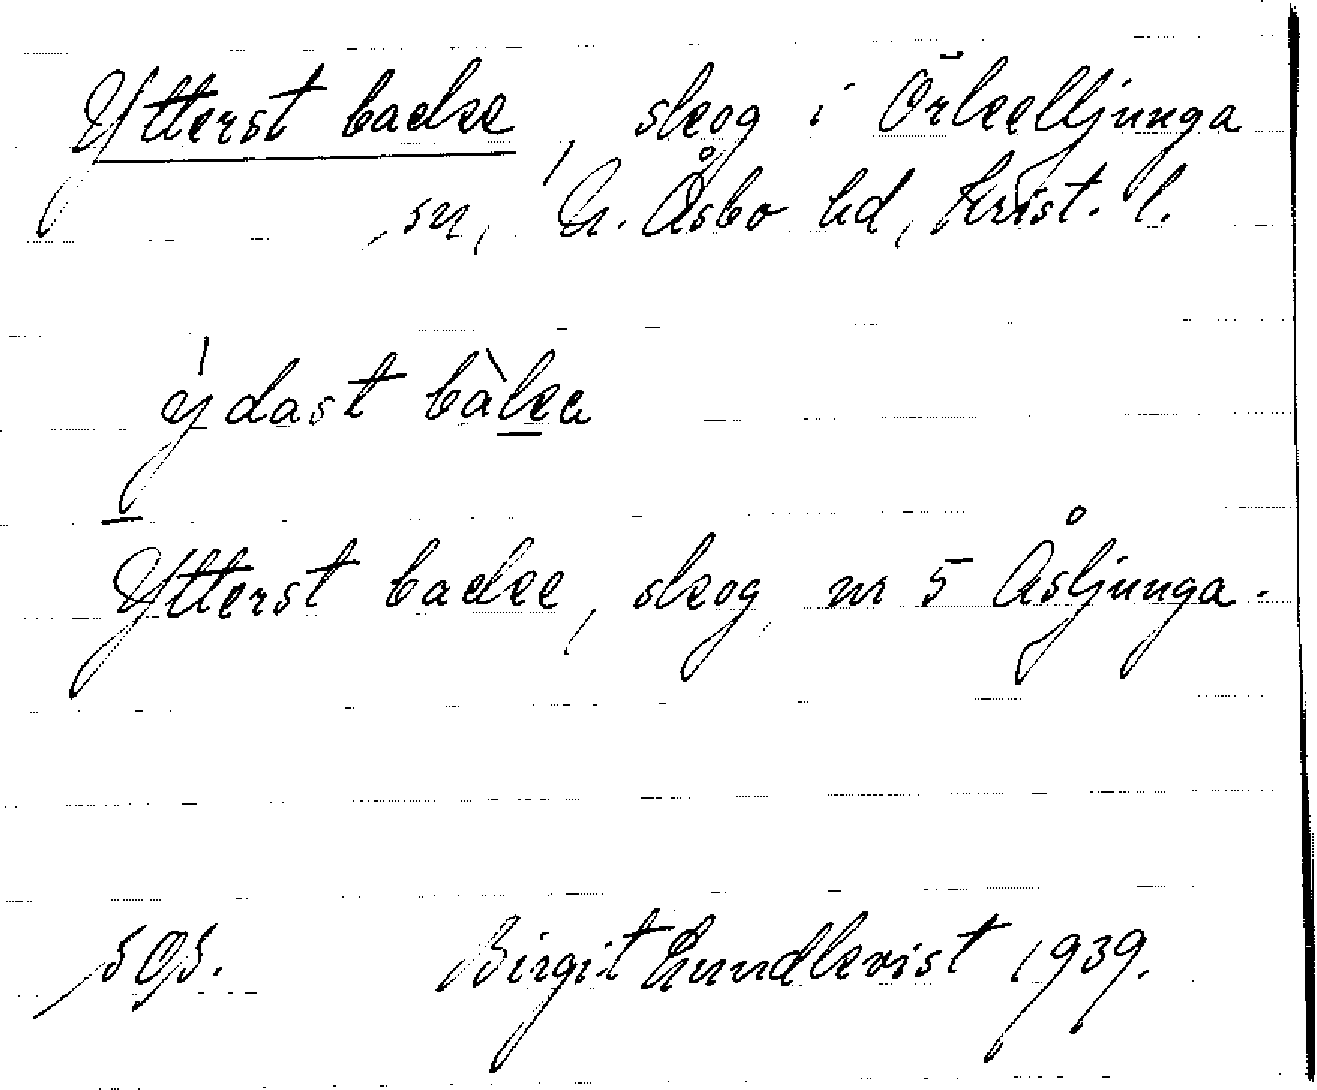 Ytterst backe, skog i Örkelljunga
sn, N. Åsbo hd, Krist. l.
ýdast bàka
Ytterst backe, skog, nr 5 Åsljunga.
sgs. Birgit Lundkvist 1939.